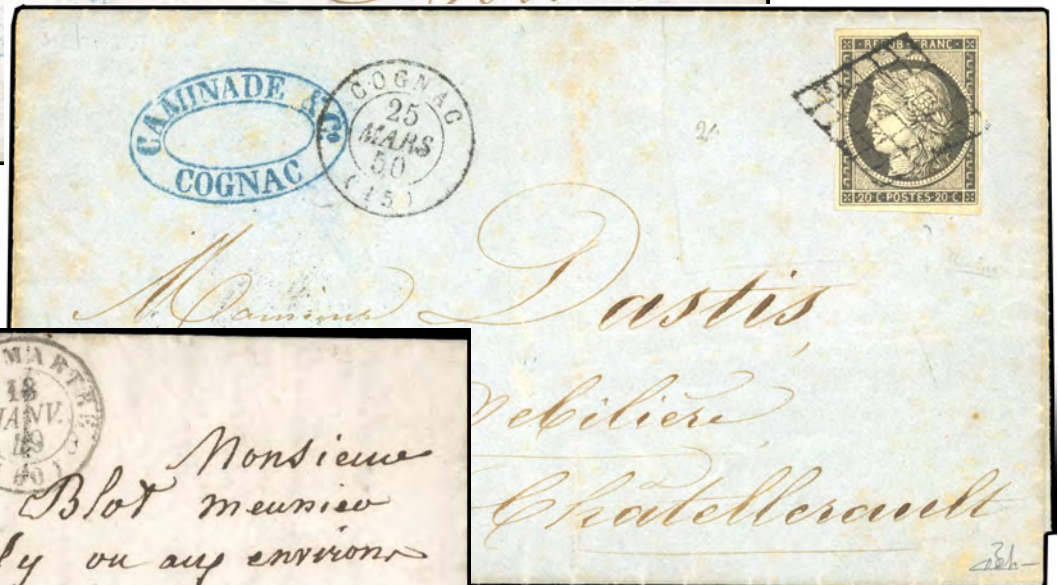 CAMINADE & Co
COGNAC
COGNAC
25
MARS
50
(15)
21
REPUB · FRANC
20 C POSTES 20 C
Monsieur Dastis,
Châtellerault
MARTRE
18
JANV.
49
(60)
Monsieur
Blot meunier
ou aux environs